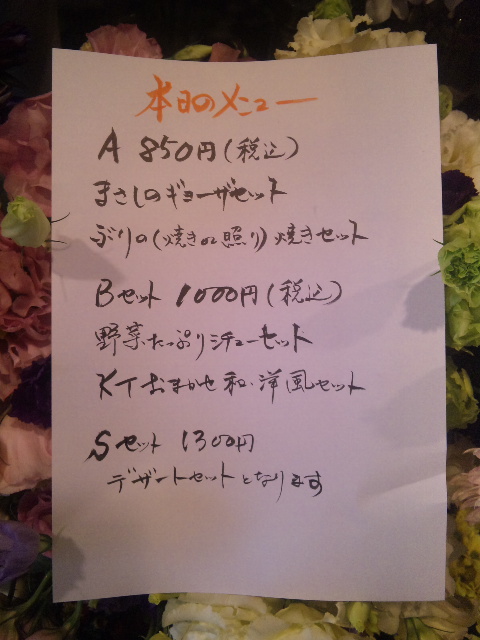 本日のメニュー
A 850円(税込)
まさしのギョーザセット
ぶりの(焼きor照り)焼きセット
Bセット 1000円(税込)
野菜たっぷりシチューセット
KTおまかせ和・洋風セット
Sセット 1300円
デザートセットとなります